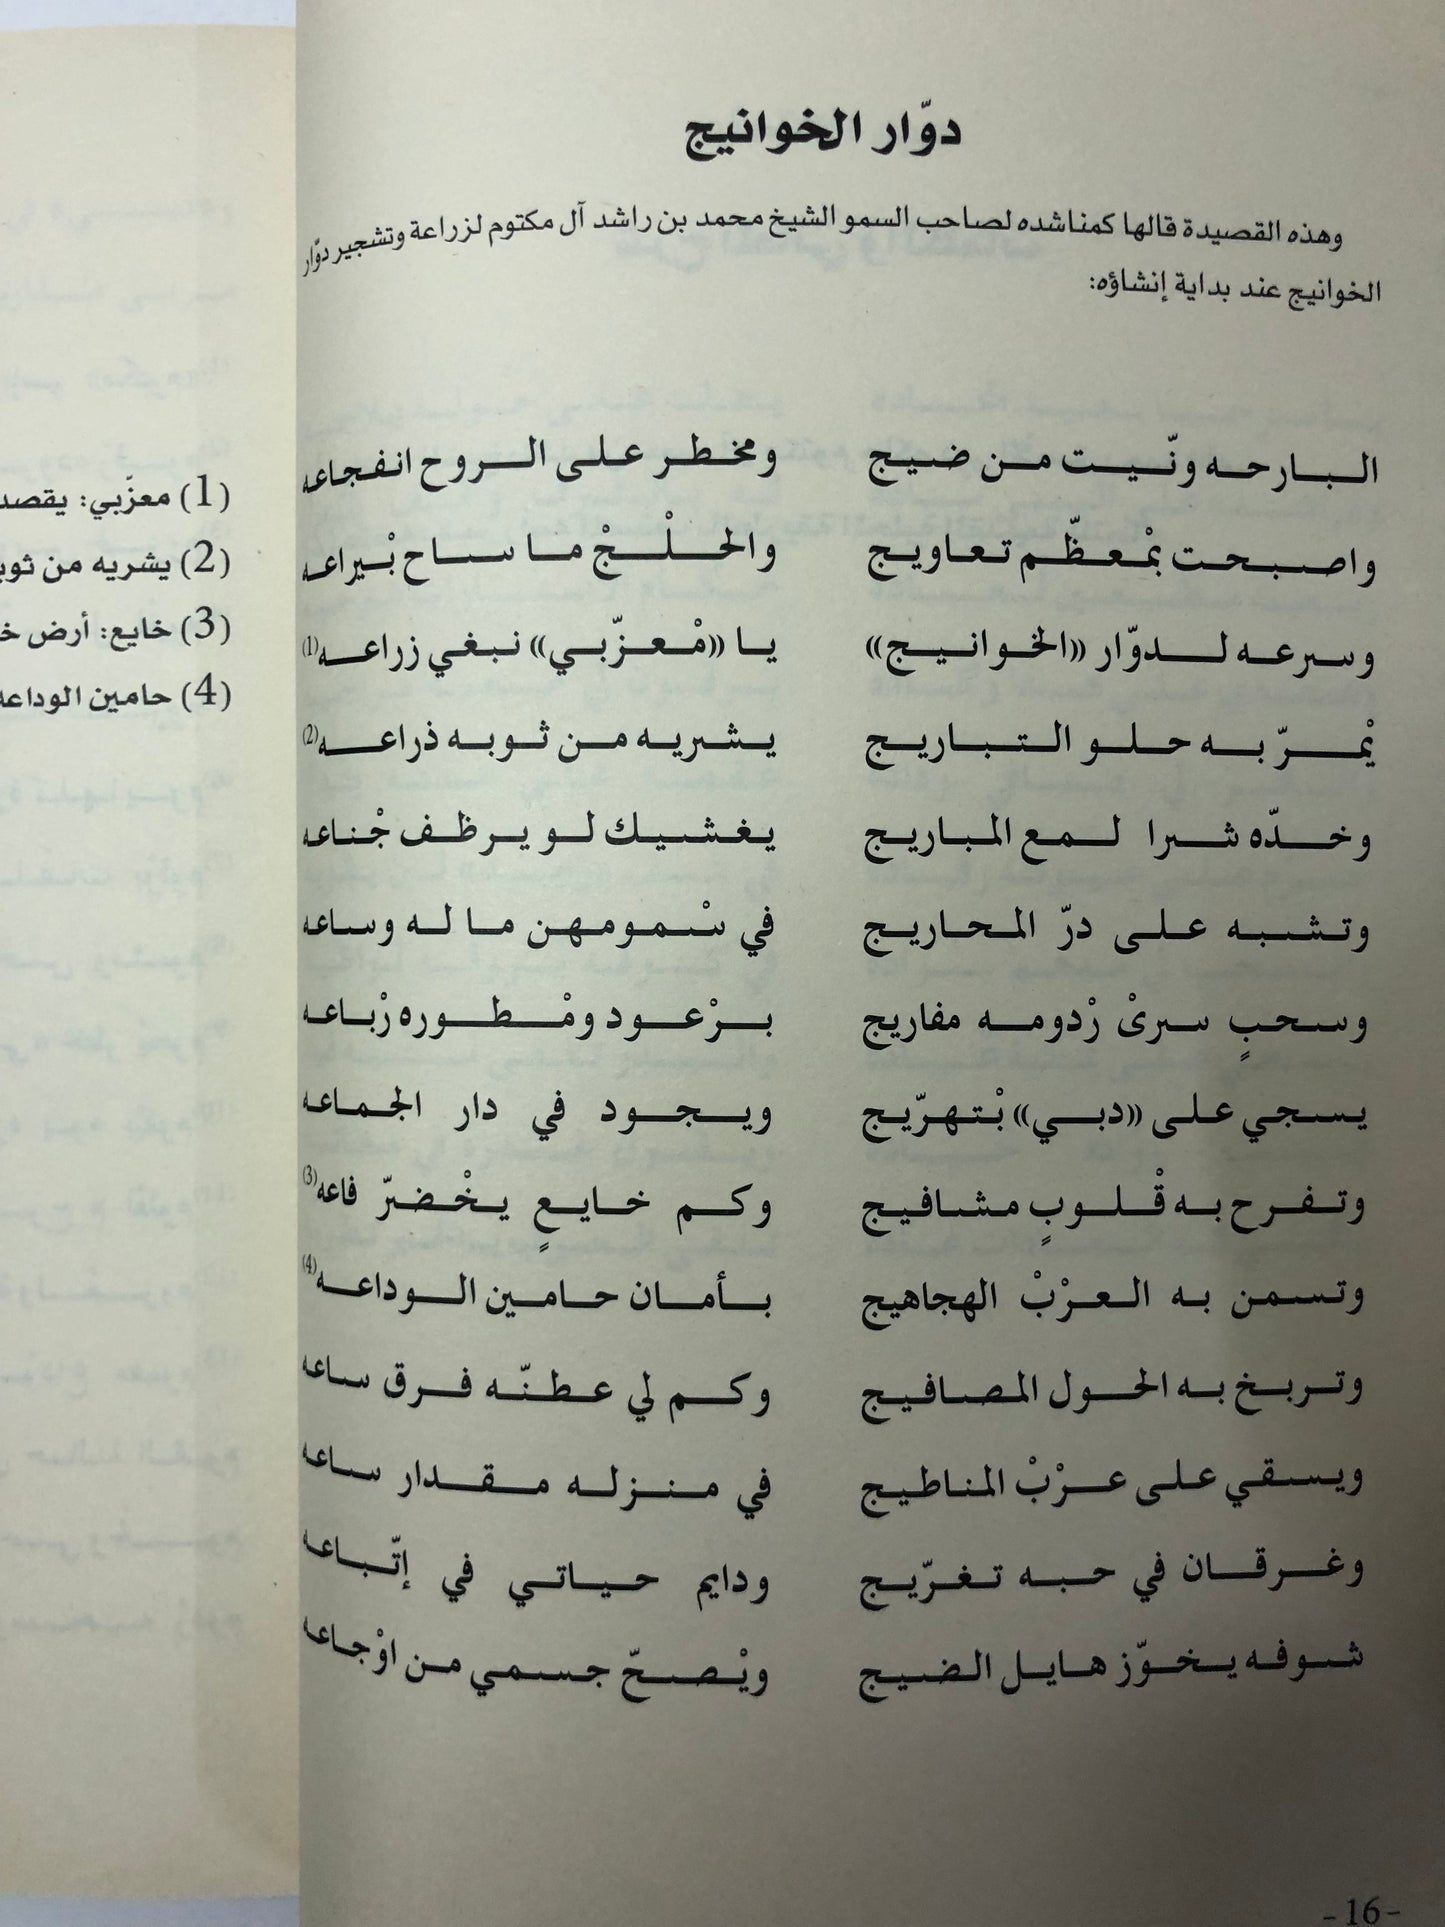 دوّار الخوانيج
وهذه القصيدة قالها كمناشده لصاحب السمو الشيخ محمد بن راشد آل مكتوم لزراعة وتشجير دوّار
الخوانيج عند بداية إنشاؤه:
البارحه ونّيت من ضيج ومخطر على الروح انفجاعه
واصبحت بمْعظّم تعاويج والحلْجْ ما ساح بْيراعه
وسرعه لدوّار «الخوانيج» يا «مْعزّبي» نبغي زراعه(1)
يْمرّ به حلو التباريج يشريه من ثوبه ذراعه(2)
وخدّه شرا لمع المباريج يغشيك لو يرظف جْناعه
وتشبه على درّ المحاريج في سْمومهن ما له وساعه
وسحبٍ سرىْ رْدومه مفاريج برْعود ومْطوره رْباعه
يسجي على «دبي» بْتهرّيج ويجود في دار الجماعه
وتفرح به قْلوبٍ مشافيج وكم خايعٍ يخْضرّ فاعه(3)
وتسمن به العرْبْ الهجاهيج بأمان حامين الوداعه(4)
وتربخ به الحول المصافيج وكم لي عطنّه فرق ساعه
ويسقي على عرْبْ المناطيج في منزله مقدار ساعه
وغرقان في حبه تغرّيج ودايم حياتي في إتّباعه
شوفه يخوّز هايل الضيج ويْصحّ جسمي من اوْجاعه
-16-
(1) معزّبي: يقصد
(2) يشريه من ثوب
(3) خايع: أرض
(4) حامين الوداعه